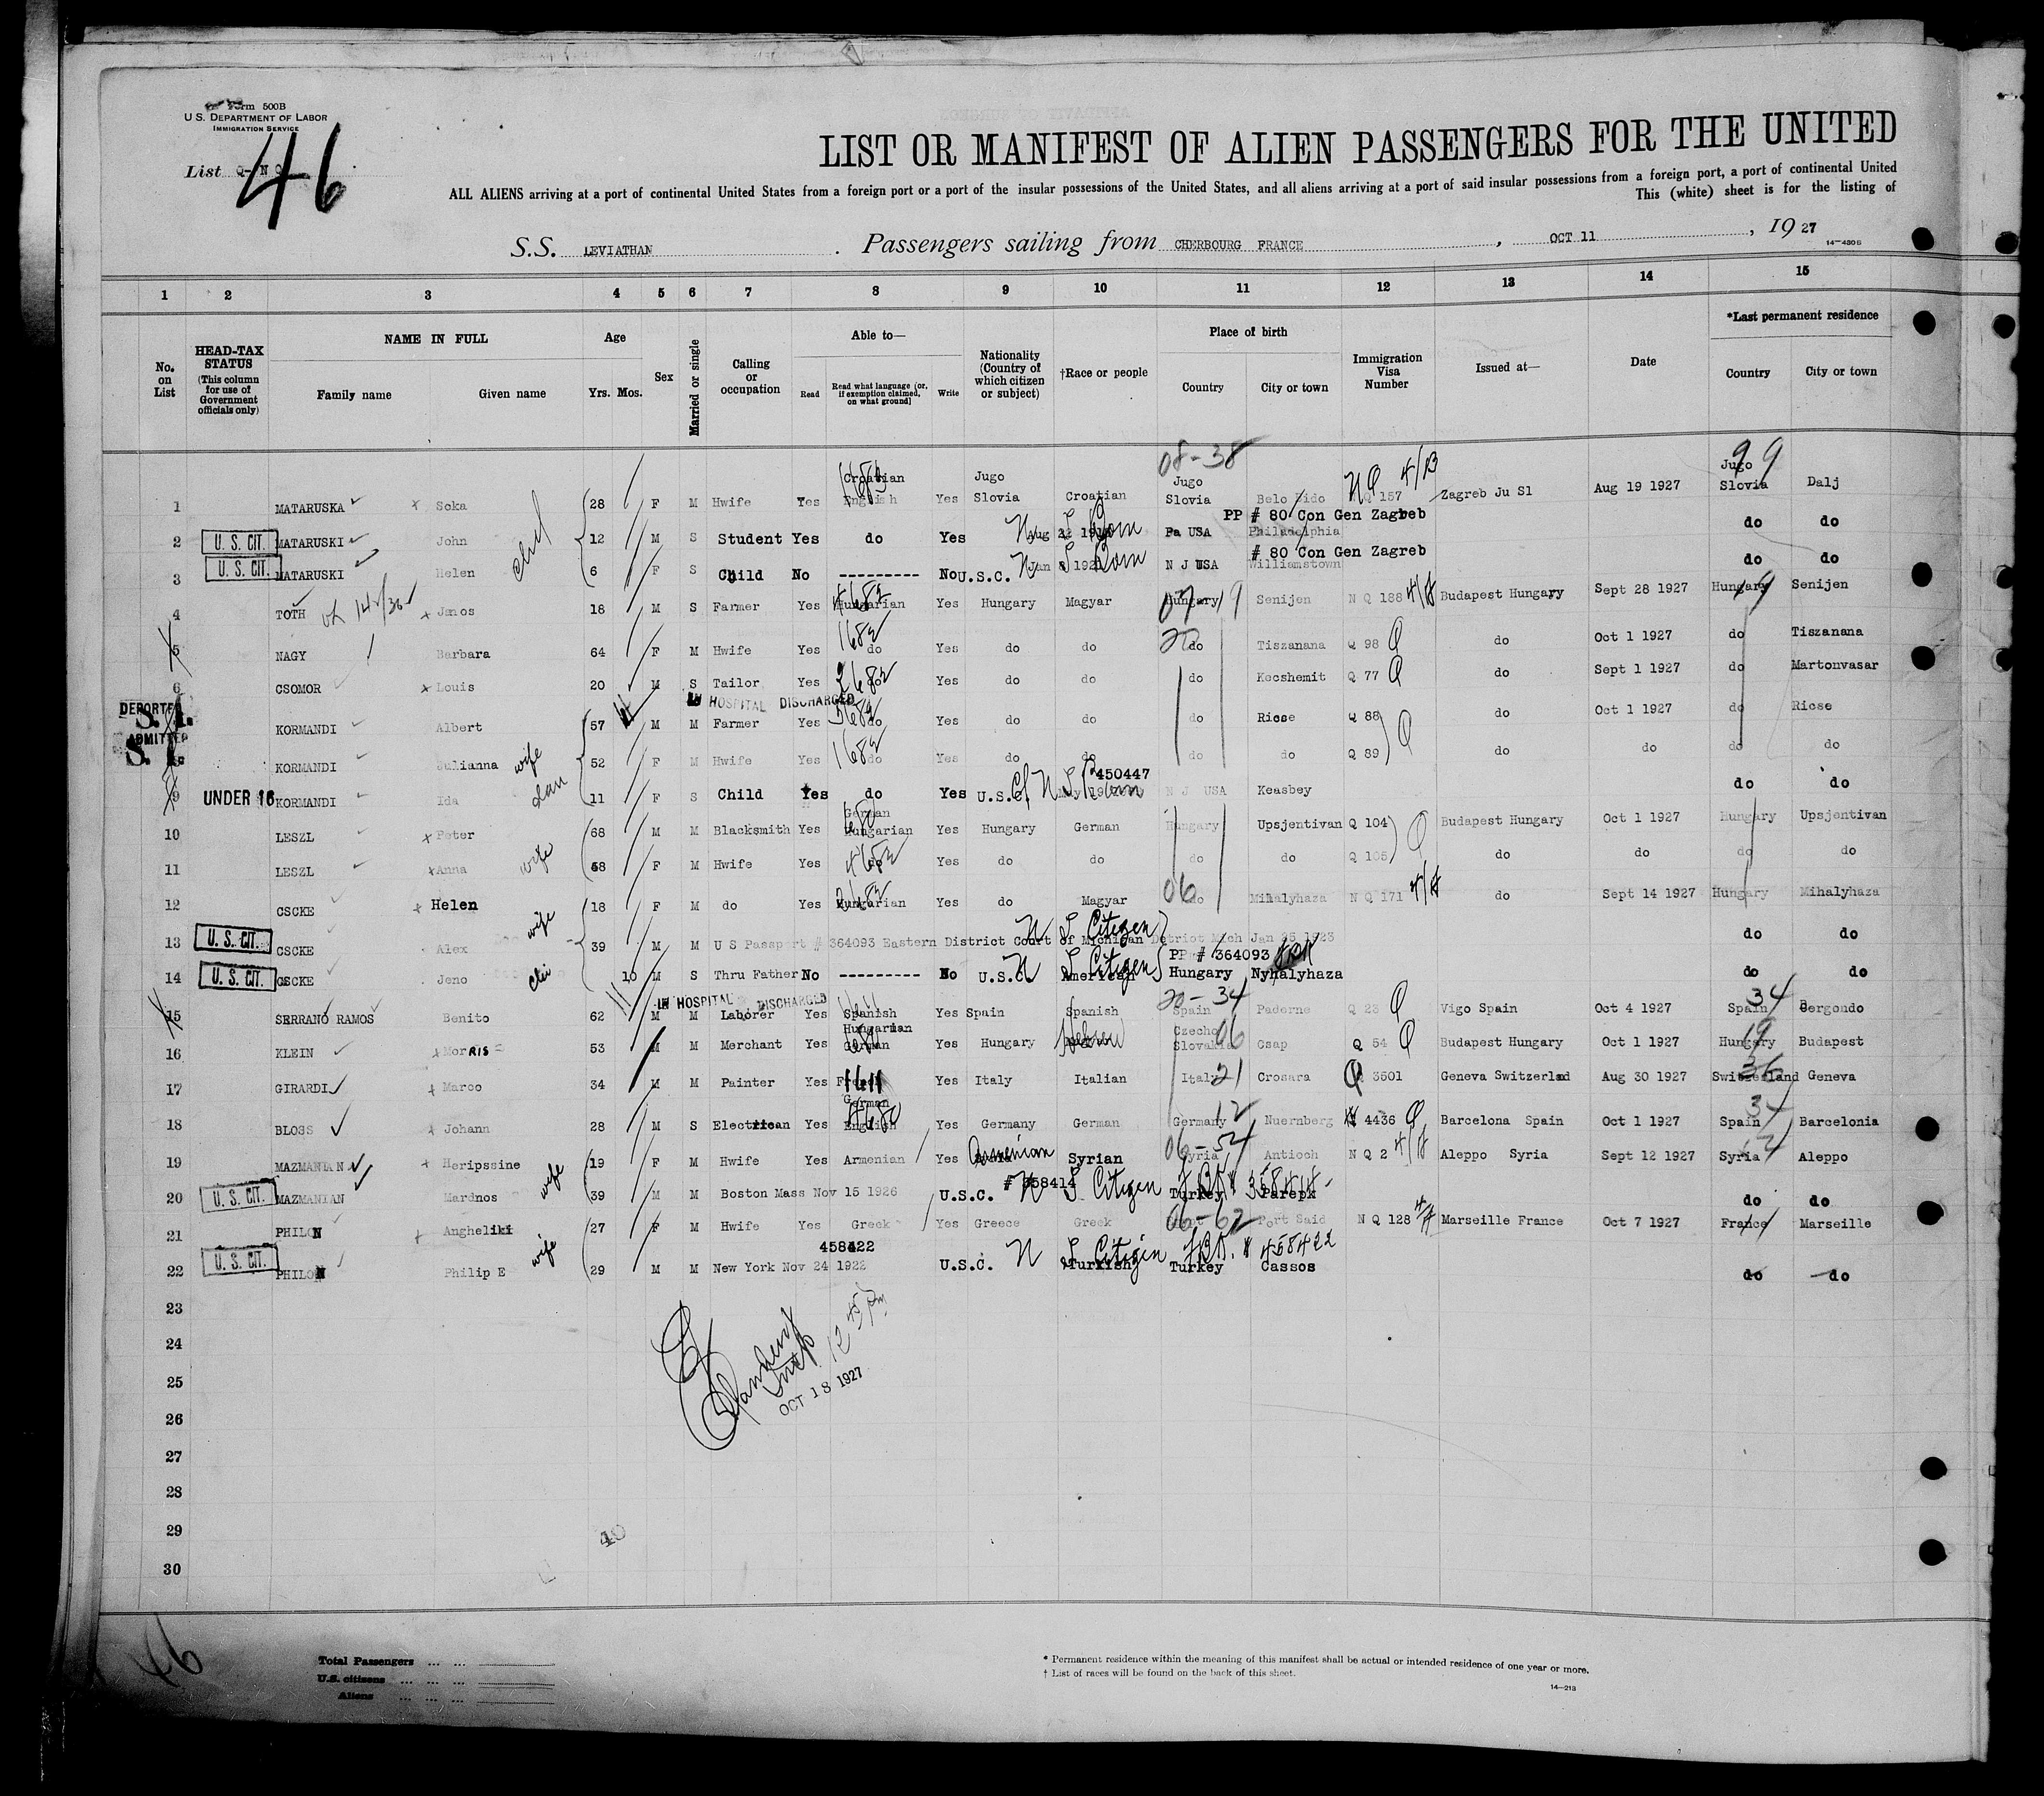 Form 500B
U. S. DEPARTMENT OF LABOR
IMMIGRATION SERVICE
List Q-N Q
46
LIST OR MANIFEST OF ALIEN PASSENGERS FOR THE UNITED
ALL ALIENS arriving at a port of continental United States from a foreign port or a port of the insular possessions of the United States, and all aliens arriving at a port of said insular possessions from a foreign port, a port of continental United
This (white) sheet is for the listing of
S.S. LEVIATHAN . Passengers sailing from CHERBOURG FRANCE , OCT 11 , 19 27
14-430B
1 2 3 4 5 6 7 8 9 10 11 12 13 14 15
No. on List
HEAD-TAX STATUS (This column for use of Government officials only)
NAME IN FULL
Family name Given name
Age
Yrs. Mos.
Sex
Married or single
Calling or occupation
Able to—
Read Read what language [or, if exemption claimed, on what ground] Write
Nationality (Country of which citizen or subject)
†Race or people
Place of birth
Country City or town
Immigration Visa Number
Issued at—
Date
*Last permanent residence
Country City or town
08-38 99
1 MATARUSKA x Soka 28 F M Hwife Yes Croatian English Yes Jugo Slovia Croatian Jugo Slovia Belo Bido N Q 157 4/B Zagreb Ju Sl Aug 19 1927 Jugo Slovia Dalj
PP # 80 Con Gen Zagreb
2 U. S. CIT. MATARUSKI John 12 M S Student Yes do Yes Aug 22 Pa USA Philadelphia do do
# 80 Con Gen Zagreb
3 U. S. CIT. MATARUSKI Helen 6 F S Child No ---------- No U.S.C. Jan N J USA Williamstown do do
4 TOTH x Janos 18 M S Farmer Yes Hungarian Yes Hungary Magyar Hungary Senijen N Q 188 Budapest Hungary Sept 28 1927 Hungary Senijen
5 NAGY Barbara 64 F M Hwife Yes do Yes do do do Tiszanana Q 98 do Oct 1 1927 do Tiszanana
6 CSOMOR x Louis 20 M S Tailor Yes do Yes do do do Kecshemit Q 77 do Sept 1 1927 do Martonvasar
DEPORTED S. I.
IN HOSPITAL DISCHARGED
KORMANDI Albert 57 M M Farmer Yes do Yes do do do Ricse Q 88 do Oct 1 1927 do Ricse
ADMITTED S. I.
KORMANDI Julianna wife 52 F M Hwife Yes do Yes do do do do Q 89 do do do do
450447
9 UNDER 16 KORMANDI Ida 11 F S Child Yes do Yes U.S.C. N J USA Keasbey do do
10 LESZL x Peter 68 M M Blacksmith Yes German Hungarian Yes Hungary German Hungary Upsjentivan Q 104 Budapest Hungary Oct 1 1927 Hungary Upsjentivan
11 LESZL x Anna wife 68 F M Hwife Yes do Yes do do do do Q 105 do do do do
12 CSCKE x Helen wife 18 F M do Yes Hungarian Yes do Magyar do Mihalyhaza N Q 171 do Sept 14 1927 Hungary Mihalyhaza
13 U. S. CIT. CSCKE Alex 39 M M U S Passport # 364093 Eastern District Court of Michigan Detriot Mich Jan 25 1923 do do
PP # 364093
14 U. S. CIT. CSCKE Jeno 10 M S Thru Father No ---------- No U.S.C. American Hungary Nyhalyhaza do do
IN HOSPITAL DISCHARGED
15 SERRANO RAMOS Benito 62 M M Laborer Yes Spanish Yes Spain Spanish Spain Paderne Q 23 Vigo Spain Oct 4 1927 Spain Bergondo
16 KLEIN x MorRIS 53 M M Merchant Yes Hungarian German Yes Hungary Hebrew Czecho Slovakia Csap Q 54 Budapest Hungary Oct 1 1927 Hungary Budapest
17 GIRARDI x Marco 34 M M Painter Yes French Yes Italy Italian Italy Crosara Q 3501 Geneva Switzerlad Aug 30 1927 Switzerland Geneva
18 BLOSS x Johann 28 M S Electrican Yes German English Yes Germany German Germany Nuernberg 4436 Barcelona Spain Oct 1 1927 Spain Barcelonia
19 MAZMANIAN x Heripssine wife 19 F M Hwife Yes Armenian Yes Armenian Syrian Syria Antioch N Q 2 Aleppo Syria Sept 12 1927 Syria Aleppo
# 358414
20 U. S. CIT. MAZMANIAN Mardnos 39 M M Boston Mass Nov 15 1926 U.S.C. U S Citizen Turkey Parepk do do
21 PHILON x Angheliki wife 27 F M Hwife Yes Greek Yes Greece Greek Port Said N Q 128 Marseille France Oct 7 1927 France Marseille
458422
22 U. S. CIT. PHILON Philip E 29 M M New York Nov 24 1922 U.S.C. U S Citizen Turkish Turkey Cassos # 458422 do do
23
24
25
26
27
28
29
30
12 45 Pm
OCT 18 1927
40
46
Total Passengers ... ...
U.S. citizens ... ... ...
Aliens ... ... ...
* Permanent residence within the meaning of this manifest shall be actual or intended residence of one year or more.
† List of races will be found on the back of this sheet.
14-213